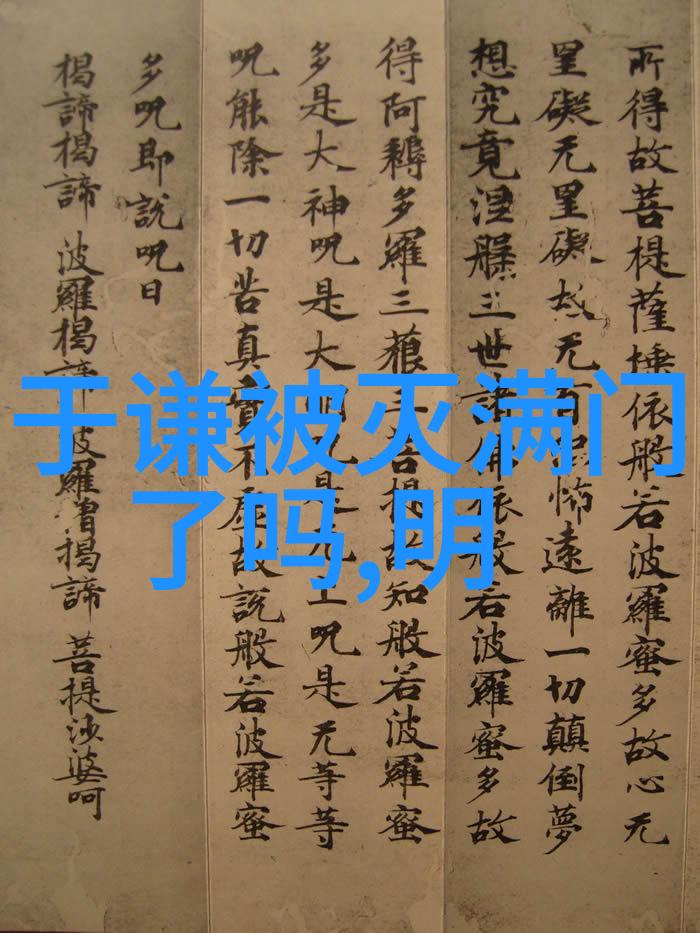 所得故菩提薩埵依般若波羅蜜多故心无
罣礙无罣礙故无有恐怖遠離一切顛倒夢
想究竟涅槃三世諸佛依般若波羅蜜多故
得阿耨多羅三藐三菩提故知般若波羅蜜
多是大神呪是大明呪是无上呪是无等等
呪能除一切苦真實不虛故說般若波羅蜜
多呪即說呪曰
揭諦揭諦 波羅揭諦 波羅僧揭諦 菩提沙婆呵
于谦被灭满门
了吗,明